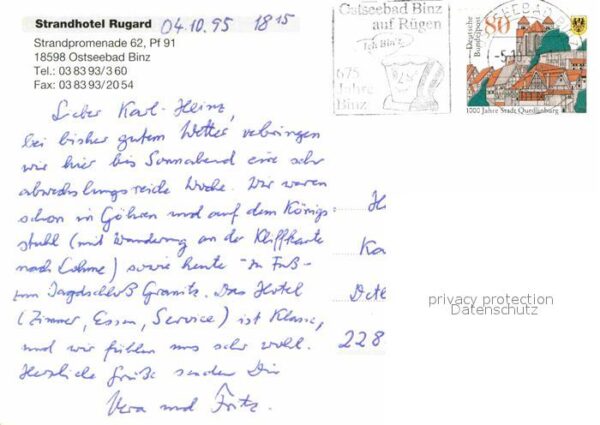 Strandhotel Rugard 04.10.95 18 15
Strandpromenade 62, Pf 91
18598 Ostseebad Binz
Tel.: 03 83 93/3 60
Fax: 03 83 93/20 54
Lieber Karl-Heinz,
bei bisher gutem Wetter verbringen
wir hier bis Sonnabend eine sehr
abwechslungsreiche Woche. Wir waren
schon in Göhren und auf dem Königs
stuhl (mit Wanderung an der Kliffkante
nach Lohme) sowie heute "zu Fuß"
zum Jagdschloß Granitz. Das Hotel
(Zimmer, Essen, Service) ist Klasse,
und wir fühlen uns sehr wohl.
Herzliche Grüße senden Dir
Vera und Fritz.
Ostseebad Binz
auf Rügen
Ich bin's
675
Jahre
Binz
OSTSEEBAD
-5.10
80
Deutsche
Bundespost
1000 Jahre Stadt Quedlinburg
H
Ka
Det
228
privacy protection
Datenschutz